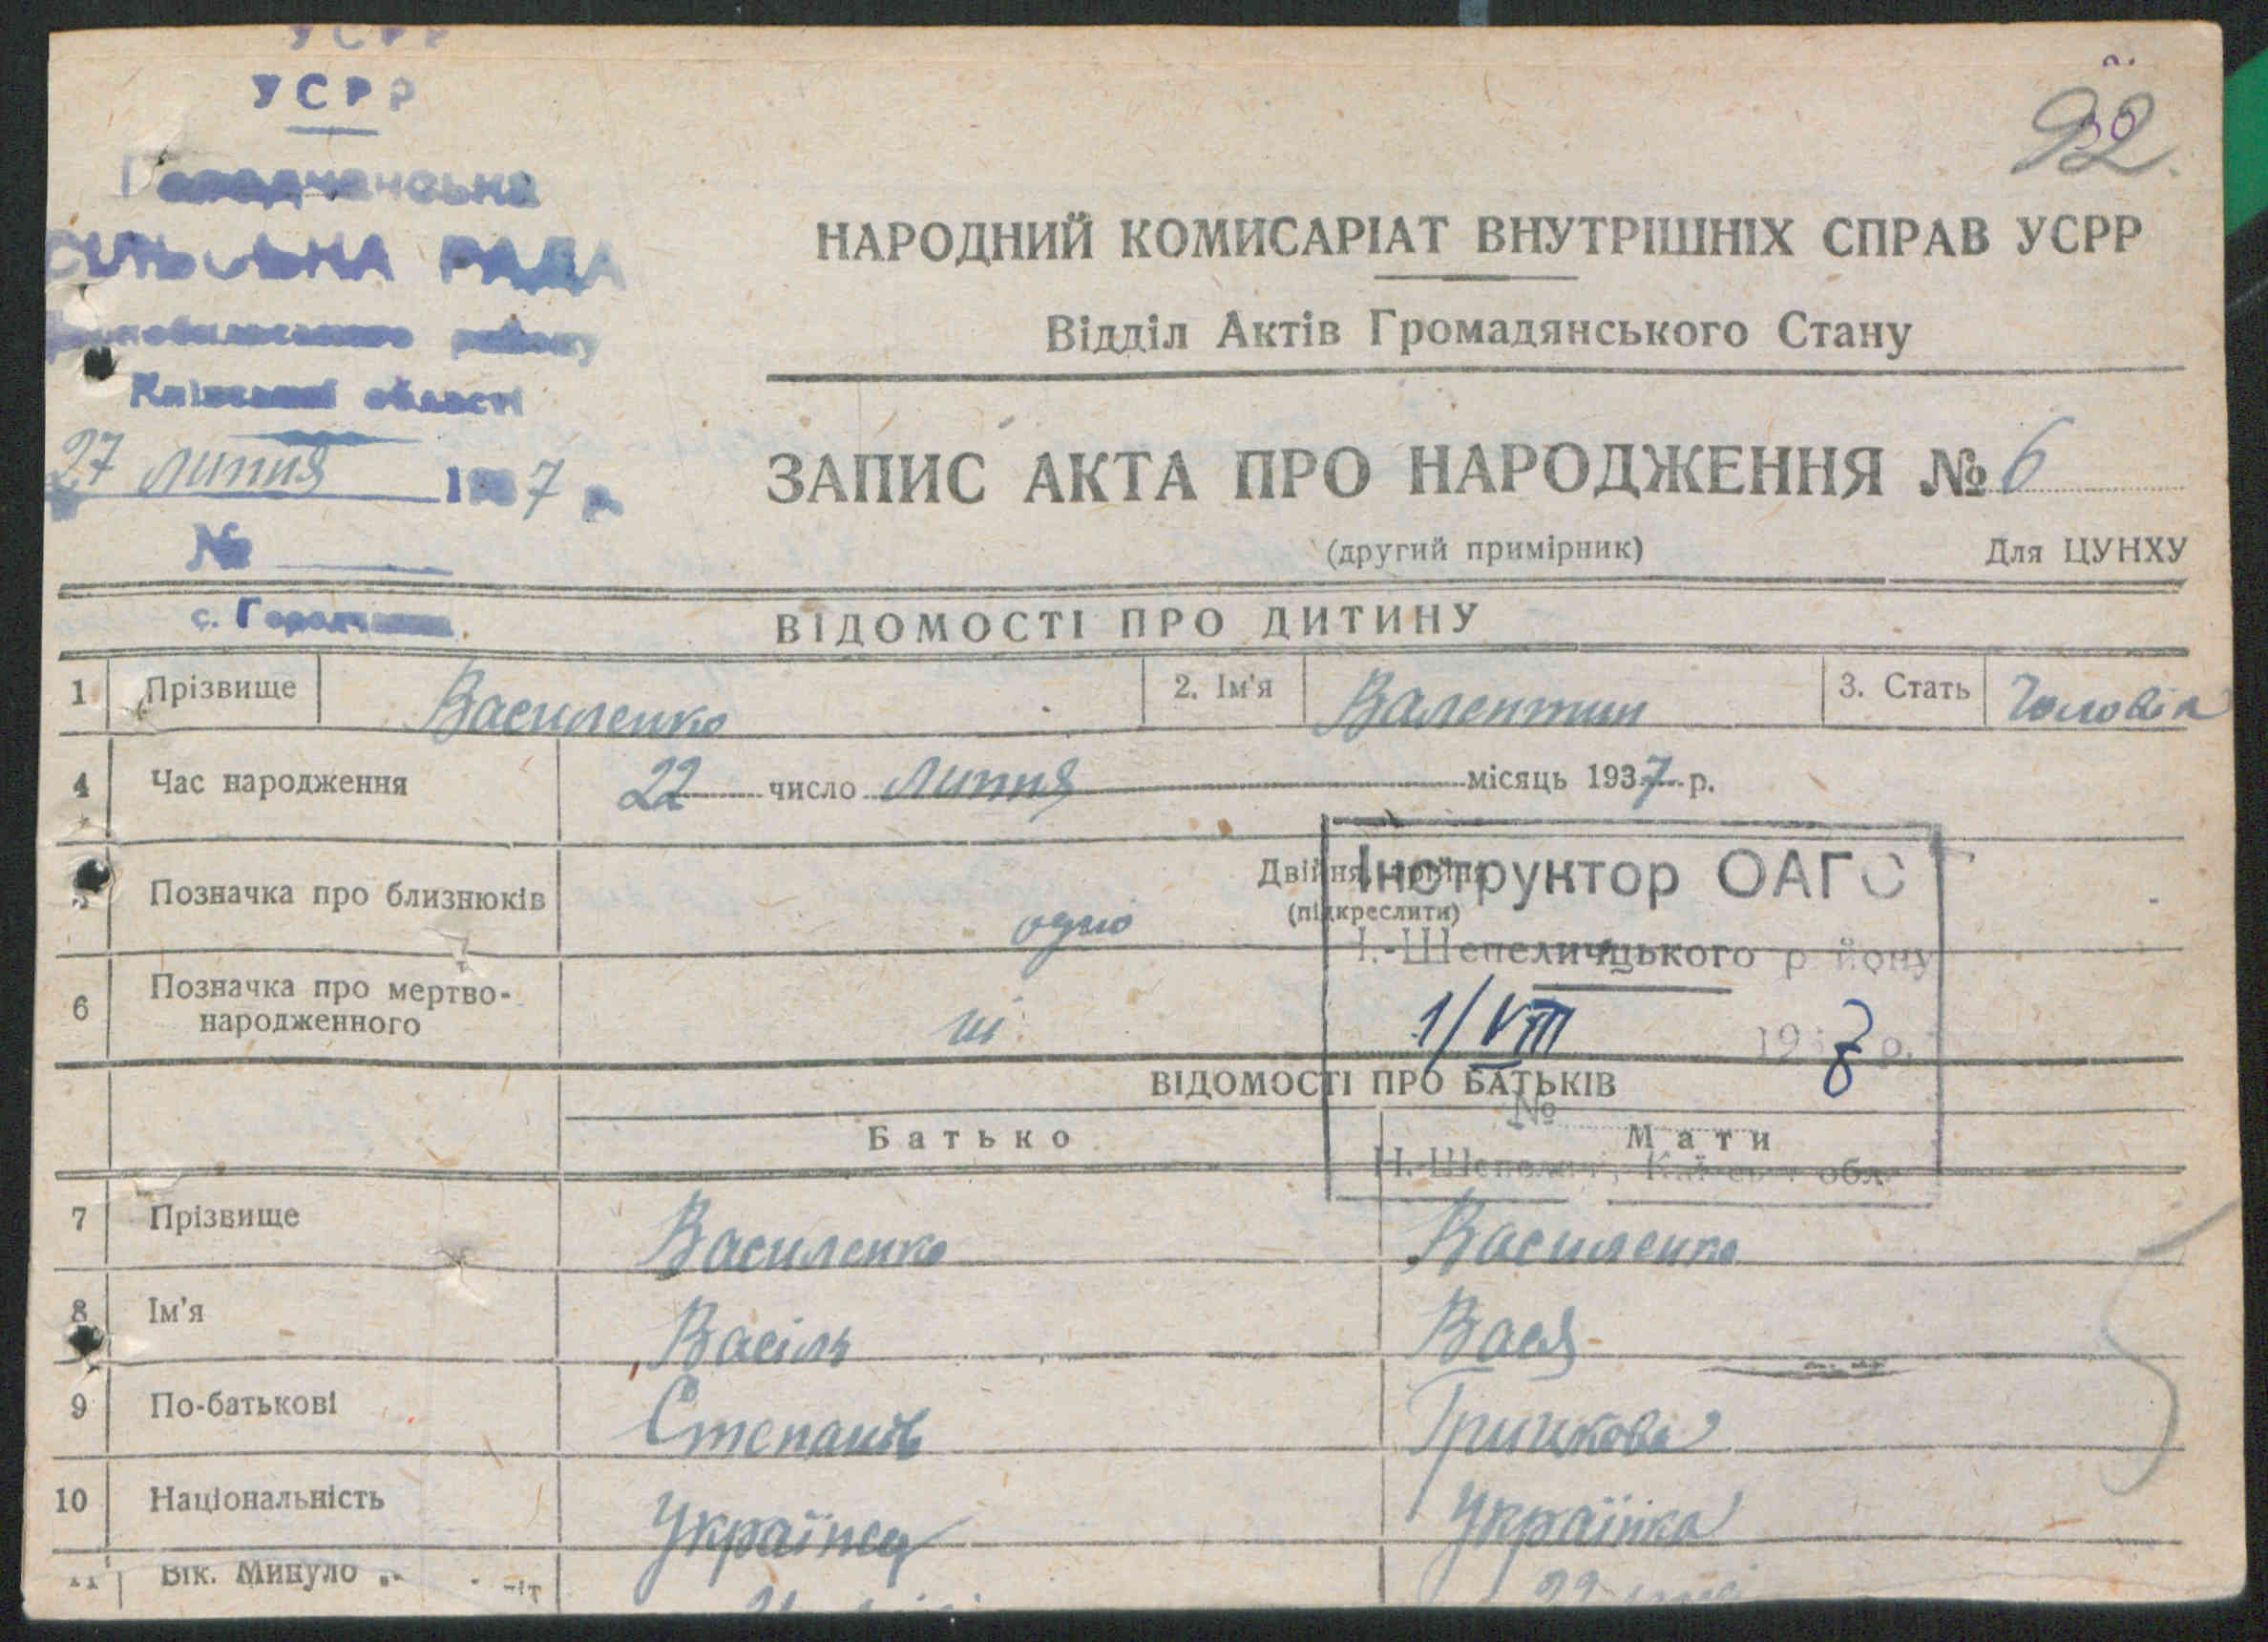 УСРР
УСРР
Городчанська
СІЛЬСЬКА РАДА
району
Київської області
27 липня 1937 р.
№
с. Городчани
92.
НАРОДНИЙ КОМИСАРІАТ ВНУТРІШНІХ СПРАВ УСРР
Відділ Актів Громадянського Стану
ЗАПИС АКТА ПРО НАРОДЖЕННЯ № 6
(другий примірник) Для ЦУНХУ
ВІДОМОСТІ ПРО ДИТИНУ
1 Прізвище Василенко 2. Ім'я Валентин 3. Стать Чоловік
4 Час народження 22 число липня місяць 1937 р.
5 Позначка про близнюків одно Двійня, трійня
(підкреслити)
Інструктор ОАГС
Н.-Шепелицького району
6 Позначка про мертво-
народженного ні
1/VIII 1937 р.
№
Н.-Шепеличі, Київської обл.
ВІДОМОСТІ ПРО БАТЬКІВ
Батько Мати
7 Прізвище Василенко Василенко
8 Ім'я Василь Вася
9 По-батькові Степанів
10 Національність Українец Українка
11 Вік. Минуло літ 22